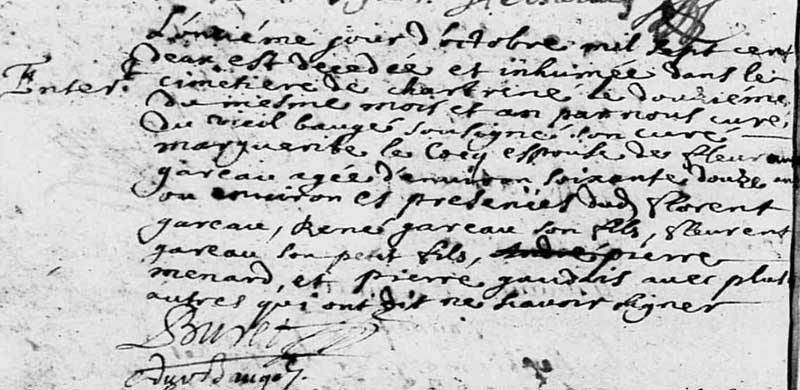 L'onziéme jour d'octobre mil sept cent
deux est decedée et inhumée dans le
Enter.t
cimetiere de chartrené le douziéme
du mesme mois et an par nous curé
du vieil baugé sousigné son curé
marguerite le Cocq espouse de fleurant
gareau agée d'environ soixante douze ans
ou environ et presences dud. florent
gareau, René gareau son fils, fleurent
gareau son petit fils, pierre
menard, et pierre gaudais avec plus.
autres qui ont dit ne scavoir signer
Buret
c. du v. baugé.